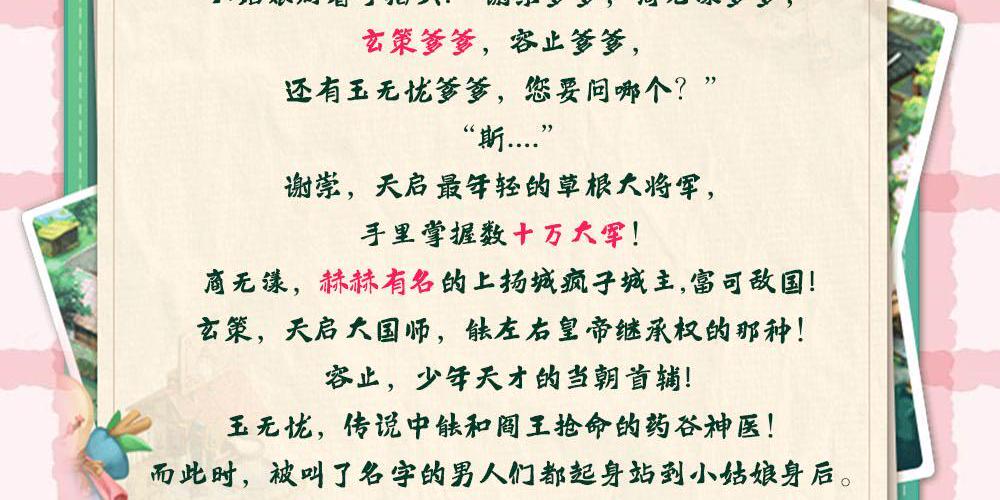 小姑娘掰着手指头：“谢崇爹爹，商无漾爹爹，
玄策爹爹，容止爹爹，
还有玉无忧爹爹，您要问哪个？”
“斯....”
谢崇，天启最年轻的草根大将军，
手里掌握数十万大军！
商无漾，赫赫有名的上扬城疯子城主,富可敌国！
玄策，天启大国师，能左右皇帝继承权的那种！
容止，少年天才的当朝首辅！
玉无忧，传说中能和阎王抢命的药谷神医！
而此时，被叫了名字的男人们都起身站到小姑娘身后。